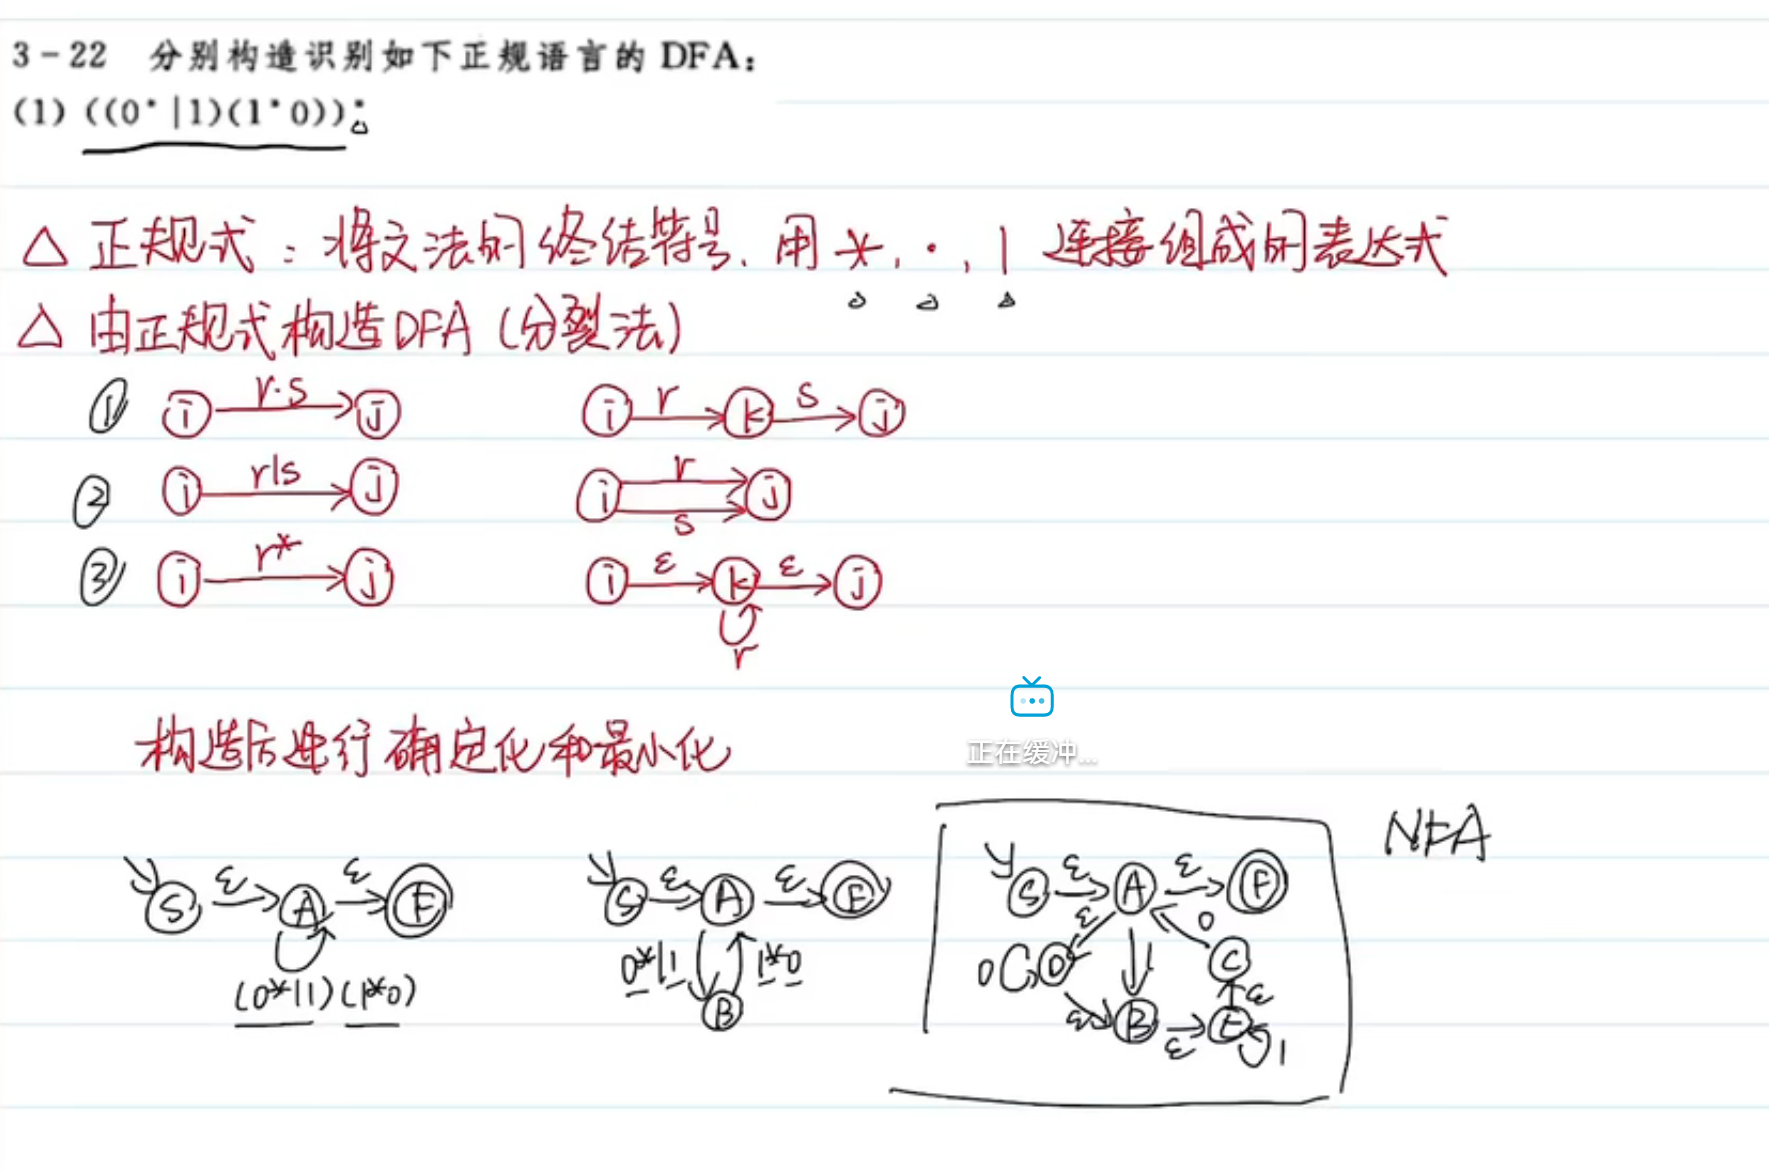 3-22 分别构造识别如下正规语言的 DFA：
(1) ((0*|1)(1*0))*
△ 正规式：将文法的终结符号、用 *, ·, | 连接组成的表达式
△ 由正规式构造DFA (分裂法)
① i r·s j i r k s j
② i r|s j i r s j
③ i r* j i ε k ε j r
正在缓冲...
构造后进行确定化和最小化
NFA
S ε A ε F (0*|1)(1*0)
S ε A ε F 0*|1 1*0 B
S ε A ε F ε 0 D 1 0 C ε ε B ε E 1